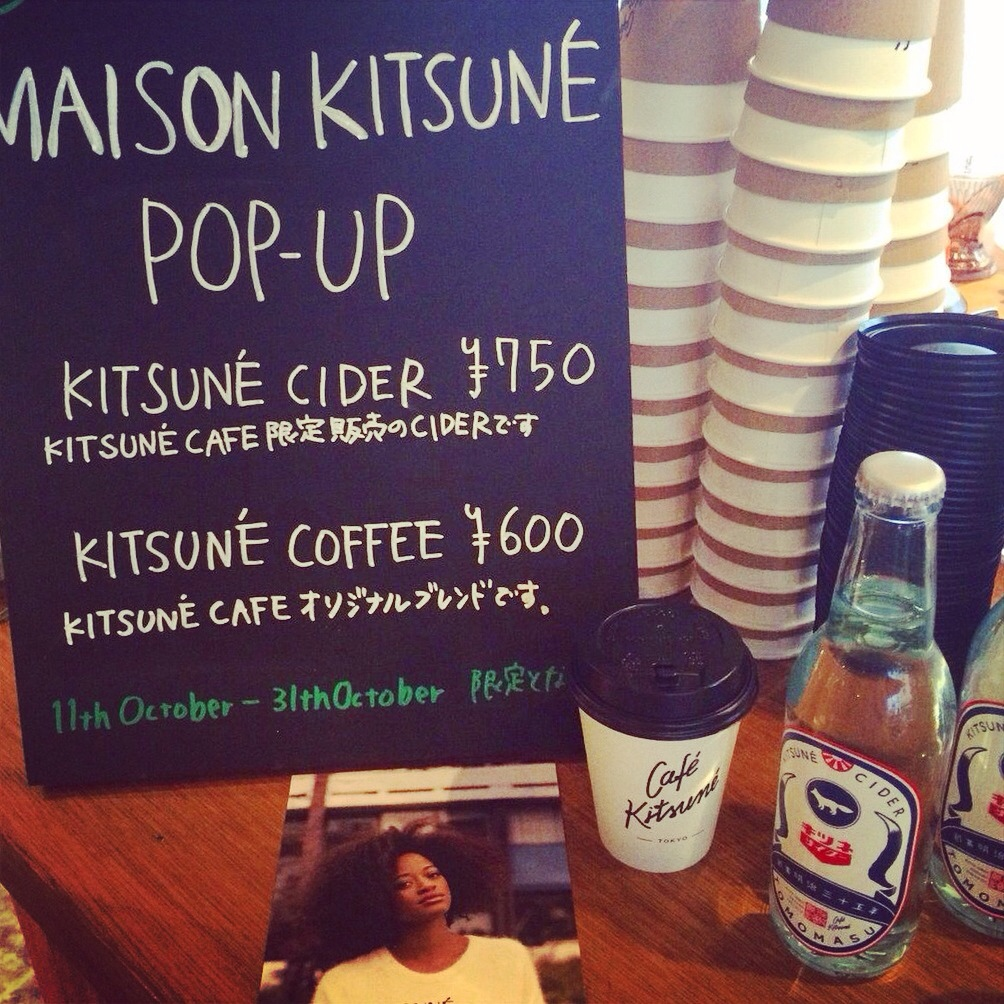 MAISON KITSUNÉ
POP-UP
KITSUNÉ CIDER ¥750
KITSUNÉ CAFE 限定販売のCIDERです
KITSUNÉ COFFEE ¥600
KITSUNÉ CAFE オリジナルブレンドです。
11th October - 31th October 限定とな
Café
Kitsuné
TOKYO
KITSUNÉ CIDER
キツネ
OMOMASU
KITSUN